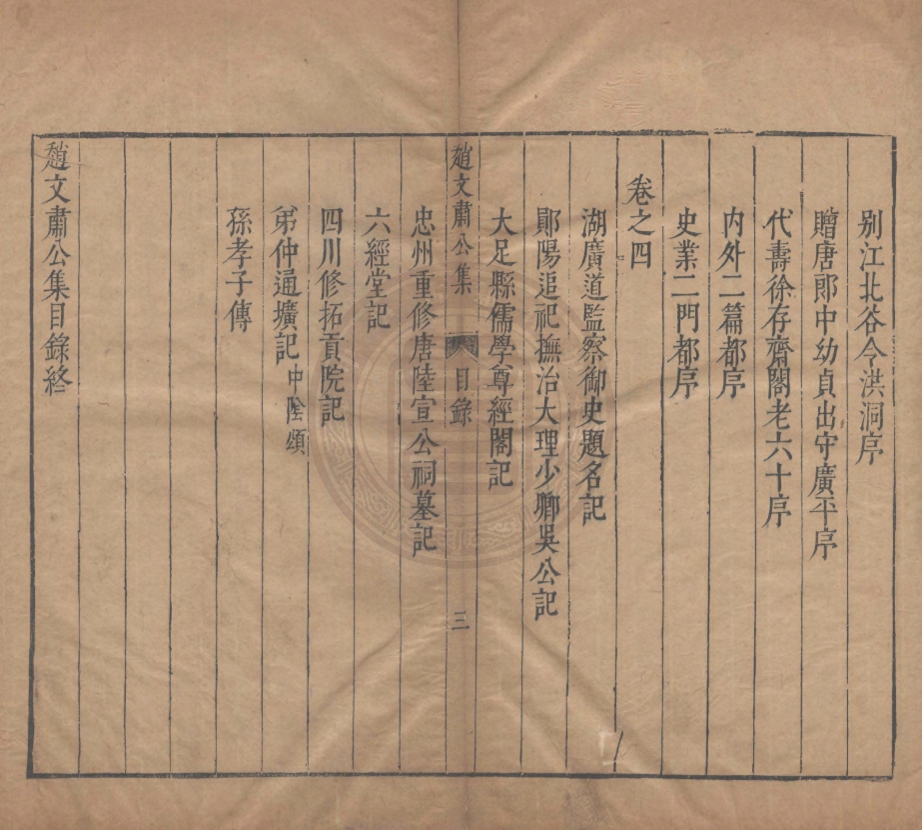 别江北谷令洪洞序
贈唐郎中幼貞出守廣平序
代壽徐存齋閣老六十序
内外二篇都序
史業二門都序
卷之四
湖廣道監察御史題名記
鄖陽追祀撫治大理少卿吳公記
大足縣儒學尊經閣記
趙文肅公集 目錄 三
忠州重修唐陸宣公祠墓記
六經堂記
四川修拓貢院記
弟仲通壙記中陰頌
孫孝子傳
趙文肅公集目錄終